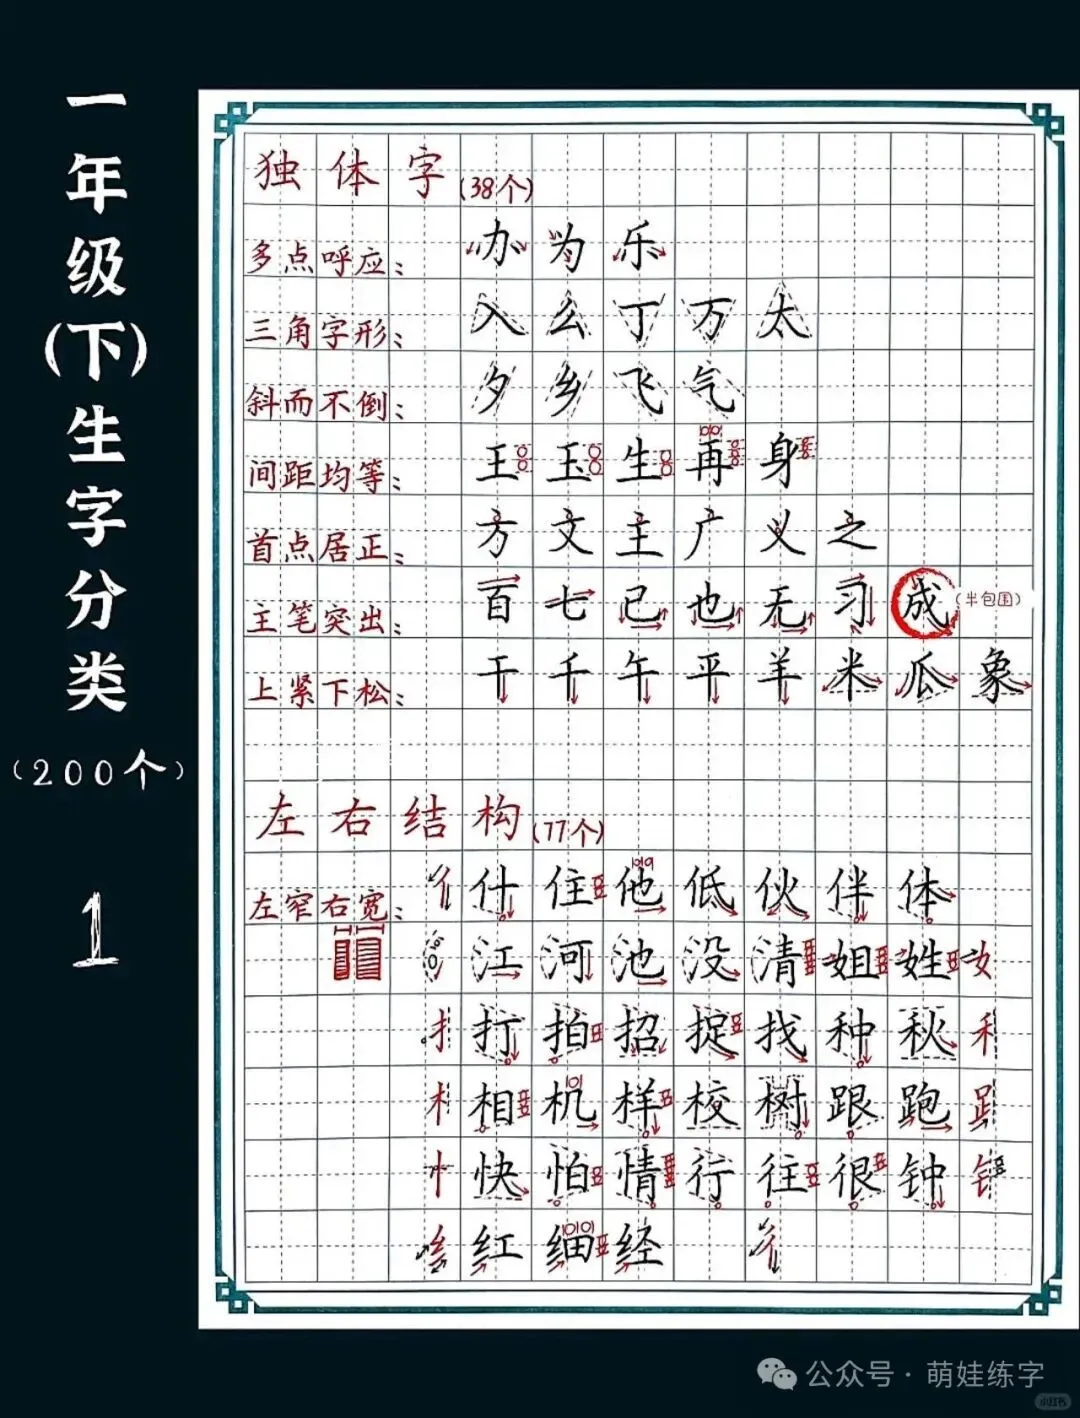 一年级(下)生字分类
(200个)
1
独体字(38个)
多点呼应: 办 为 乐
三角字形: 入 么 丁 万 太
斜而不倒: 夕 乡 飞 气
间距均等: 王 玉 生 再 身
首点居正: 方 文 主 广 义 之
主笔突出: 百 七 已 也 无 习 成 (半包围)
上紧下松: 干 千 午 平 羊 米 瓜 象
左右结构(77个)
左窄右宽: 亻 什 住 他 低 伙 伴 体
氵 江 河 池 没 清 姐 姓 女
扌 打 拍 招 捉 找 种 秋 禾
木 相 机 样 校 树 跟 跑 𧾷
忄 快 怕 情 行 往 很 钟 钅
纟 红 细 经 彳
公众号·萌娃练字
小红书